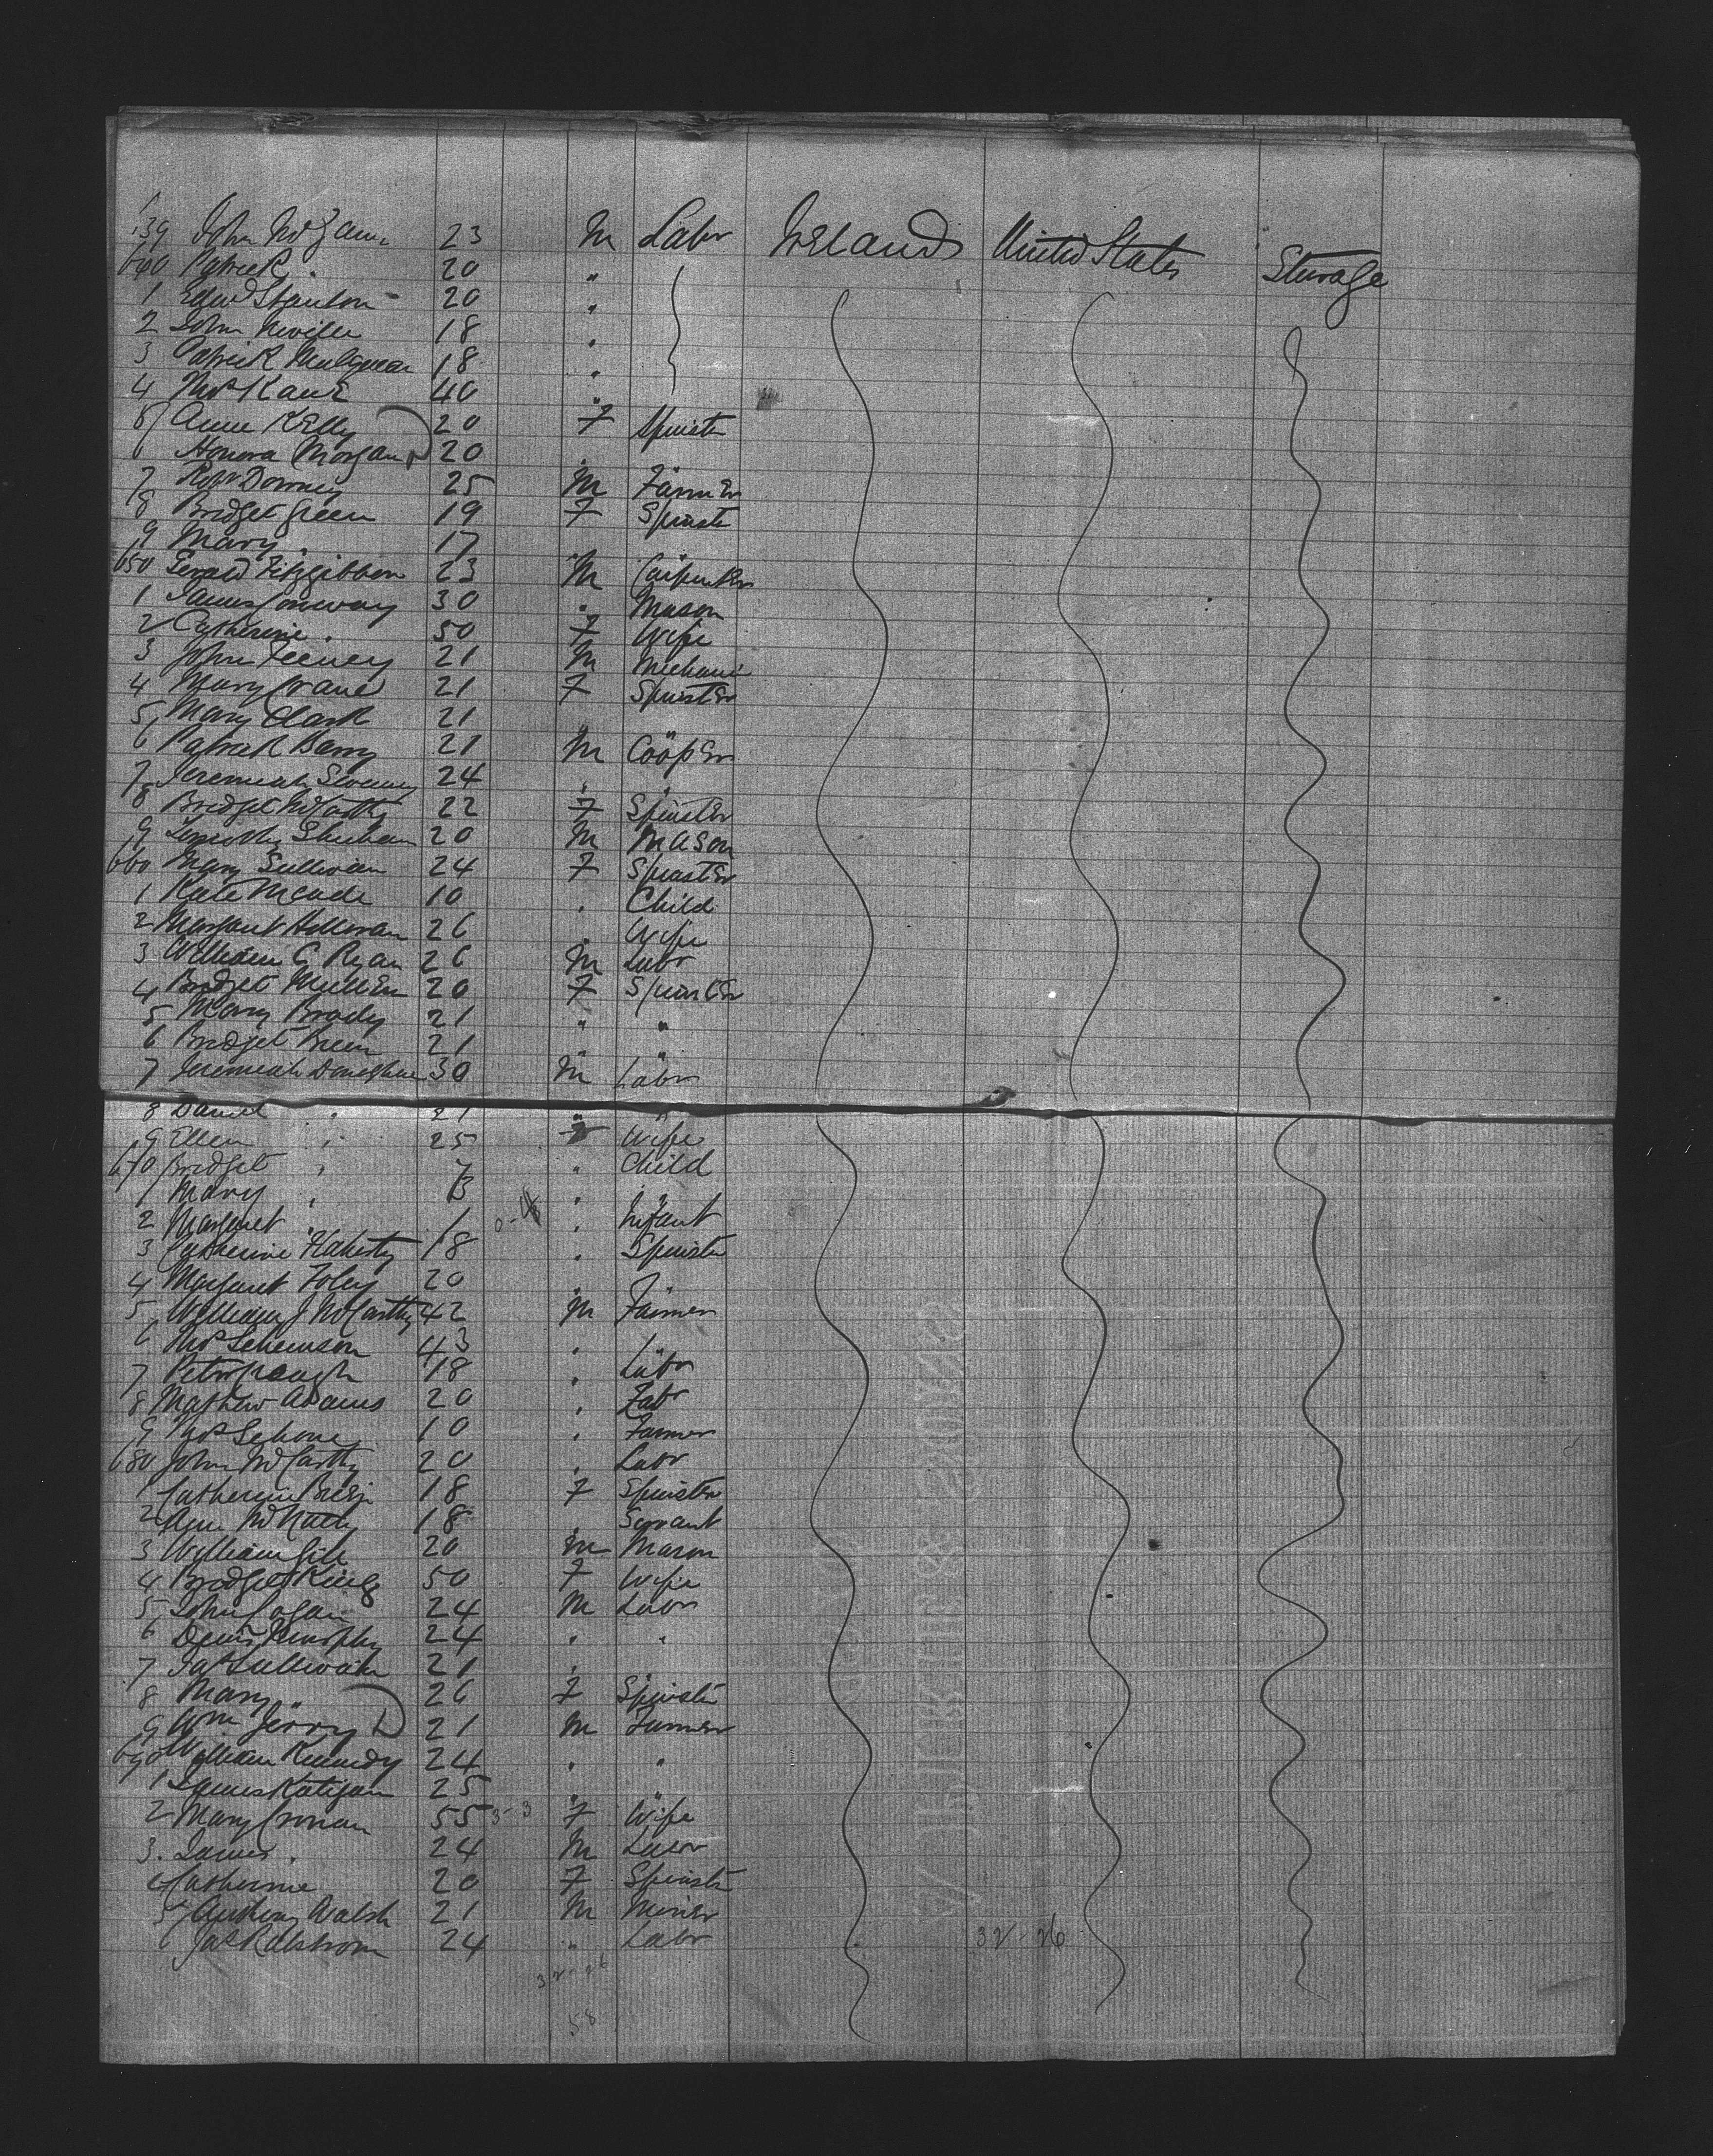 639 John McGann 23 M Labr Ireland United States Steerage
640 Patrick " 20 "
1 Edwd Stanton 20 "
2 John Neville 18 "
3 Patrick 18 "
4 Thos Kane 40 "
5 Anne Kelly 20 F Spinster
6 Honora Morgan 20
7 Robt Downey 25 M Farmer
8 Bridget Green 19 F Spinster
9 Mary " 17
650 Gerald Fitzgibbon 23 M Carpenter
1 James Conway 30 " Mason
2 Catherine " 50 F Wife
3 John Feeney 21 M Mechanic
4 Mary Crane 21 F Spinster
5 Mary Clark 21
6 Patrick Barry 21 M Cooper
7 Jeremiah Sweeney 24 " "
8 Bridget McCarthy 22 F Spinster
9 Timothy Sheehan 20 M Mason
660 Mary Sullivan 24 F Spinster
1 Kate Meade 10 " Child
2 Margaret Holloran 26 " Wife
3 William G Ryan 26 M Labr
4 Bridget Mullen 20 F Spinster
5 Mary Brady 21 " "
6 Bridget Breen 21
7 Jeremiah Donoghue 30 M Labr
8 Daniel " 21 " "
9 Ellen " 25 F Wife
670 Bridget " 7 " Child
1 Mary " 3 "
2 Margaret " 1 " Infant
3 Catherine Flaherty 18 " Spinster
4 Margaret Foley 20
5 William J McCarthy 42 M Farmer
6 Thos 43 " "
7 Peter 18 " Labr
8 Mathew Adams 20 " Labr
9 Thos 10 " Farmer
680 John McCarthy 20 " Labr
1 Catherine 18 F Spinster
2 Ann McNally 18 " Servant
3 William Gill 20 M Mason
4 Bridget King 50 F Wife
5 John Cogan 24 M Labr
6 Denis Murphy 24 " "
7 Jas Sullivan 21 "
8 Mary " 26 F Spinster
9 Wm Jerry 21 M Farmer
690 William Kennedy 24 " "
1 James Katigan 25 " "
2 Mary Cronan 55 3-3 F Wife
3 James " 24 M Labor
4 Catherine 20 F Spinster
5 Anthony Walsh 21 M Miner
6 Jas Ralstrom 24 " Labr 32-26
32-26
58